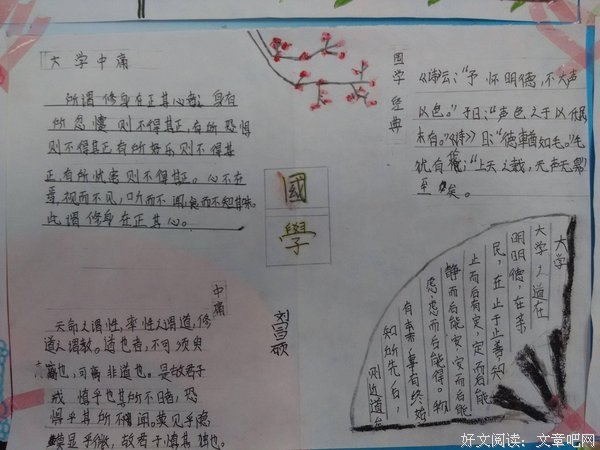 大学中庸
所谓修身在正其心者：身有
所忿懥则不得其正，有所恐惧
则不得其正有所好乐则不得其
正有所忧患则不得其正。心不在
焉，视而不见，听而不闻，食而不知其味。
此谓修身在正其心。
国学经典
《诗云：“予怀明德，不大声
以色。”子曰：“声色之于以化民
未有。”《诗》曰：“德輶如毛。”毛
犹有伦；“上天之载，无声无臭
至矣。
國
學
中庸
天命之谓性，率性之谓道，修
道之谓教。道也者，不可须臾
离也，可离非道也。是故君子
戒慎乎其所不睹，恐
惧乎其所不闻。莫见乎隐
莫显乎微，故君子慎其独也。
刘昌硕
大学
大学之道在
明明德，在亲
民，在止于止善知
止而后有定，定而后能
静而后能安，安而后能
虑，虑而后能得。物
有本末，事有终始
知所先后，
则近道矣
好文阅读：文章吧网